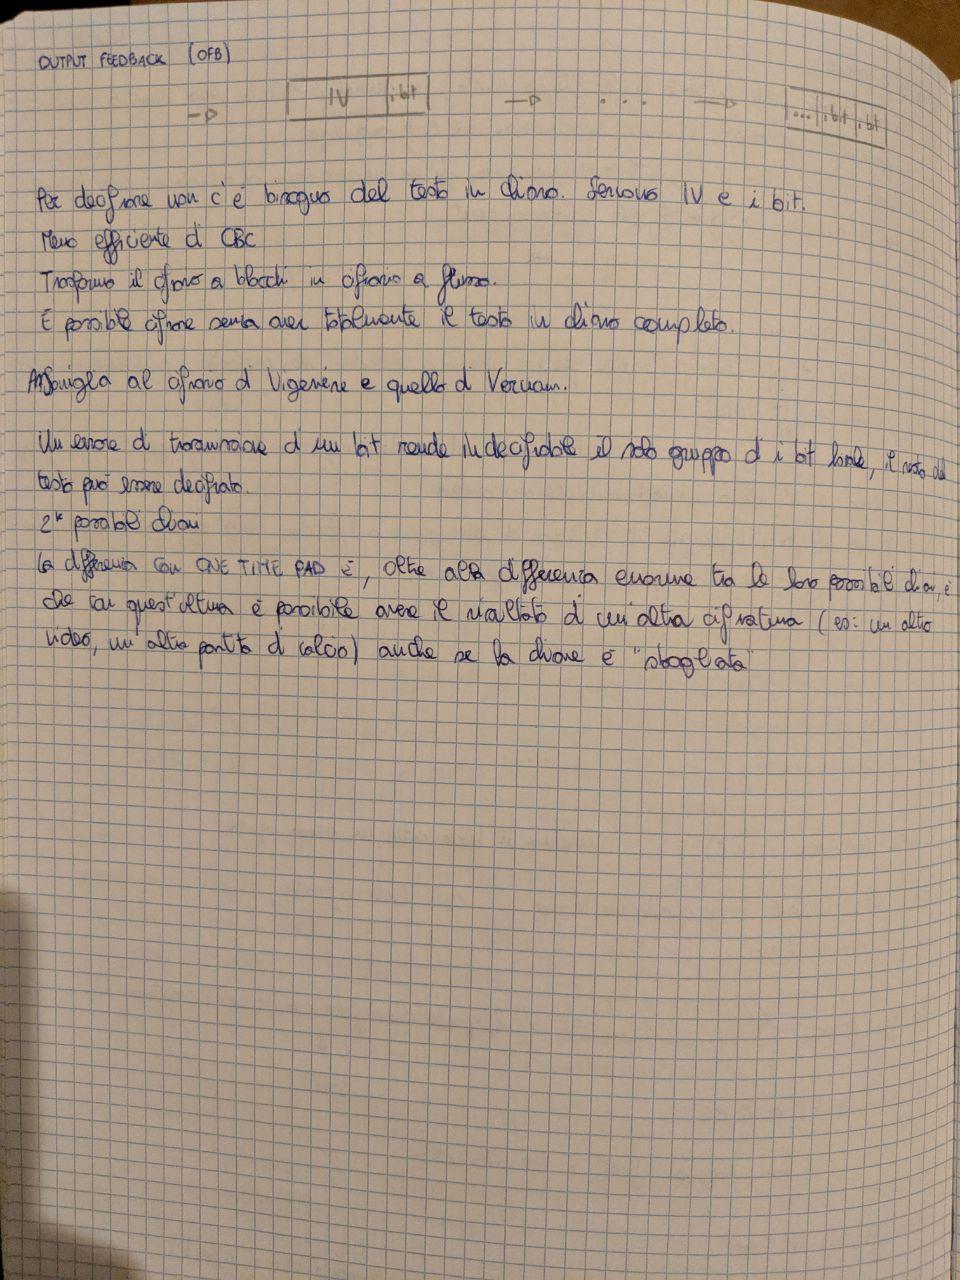 OUTPUT FEEDBACK (OFB)
IV i bit ... ... i bit i bit
Per decifrare non c'è bisogno del testo in chiaro. Servono IV e i bit.
Meno efficiente di CBC
Trasformo il cifrario a blocchi in cifrario a flusso.
È possibile cifrare senza aver totalmente il testo in chiaro completo.
Assomiglia al cifrario di Vigenère e quello di Vernam.
Un errore di trasmissione di un bit rende indecifrabile il solo gruppo di i bit locale, il resto del
testo può essere decifrato.
2ᵏ possibili chiavi
La differenza con ONE TIME PAD è, oltre alla differenza enorme tra le loro possibili chiavi, è
che con quest'ultima è possibile avere il risultato di un'altra cifratura (es: un altro
video, un'altra partita di calcio) anche se la chiave è "sbagliata"